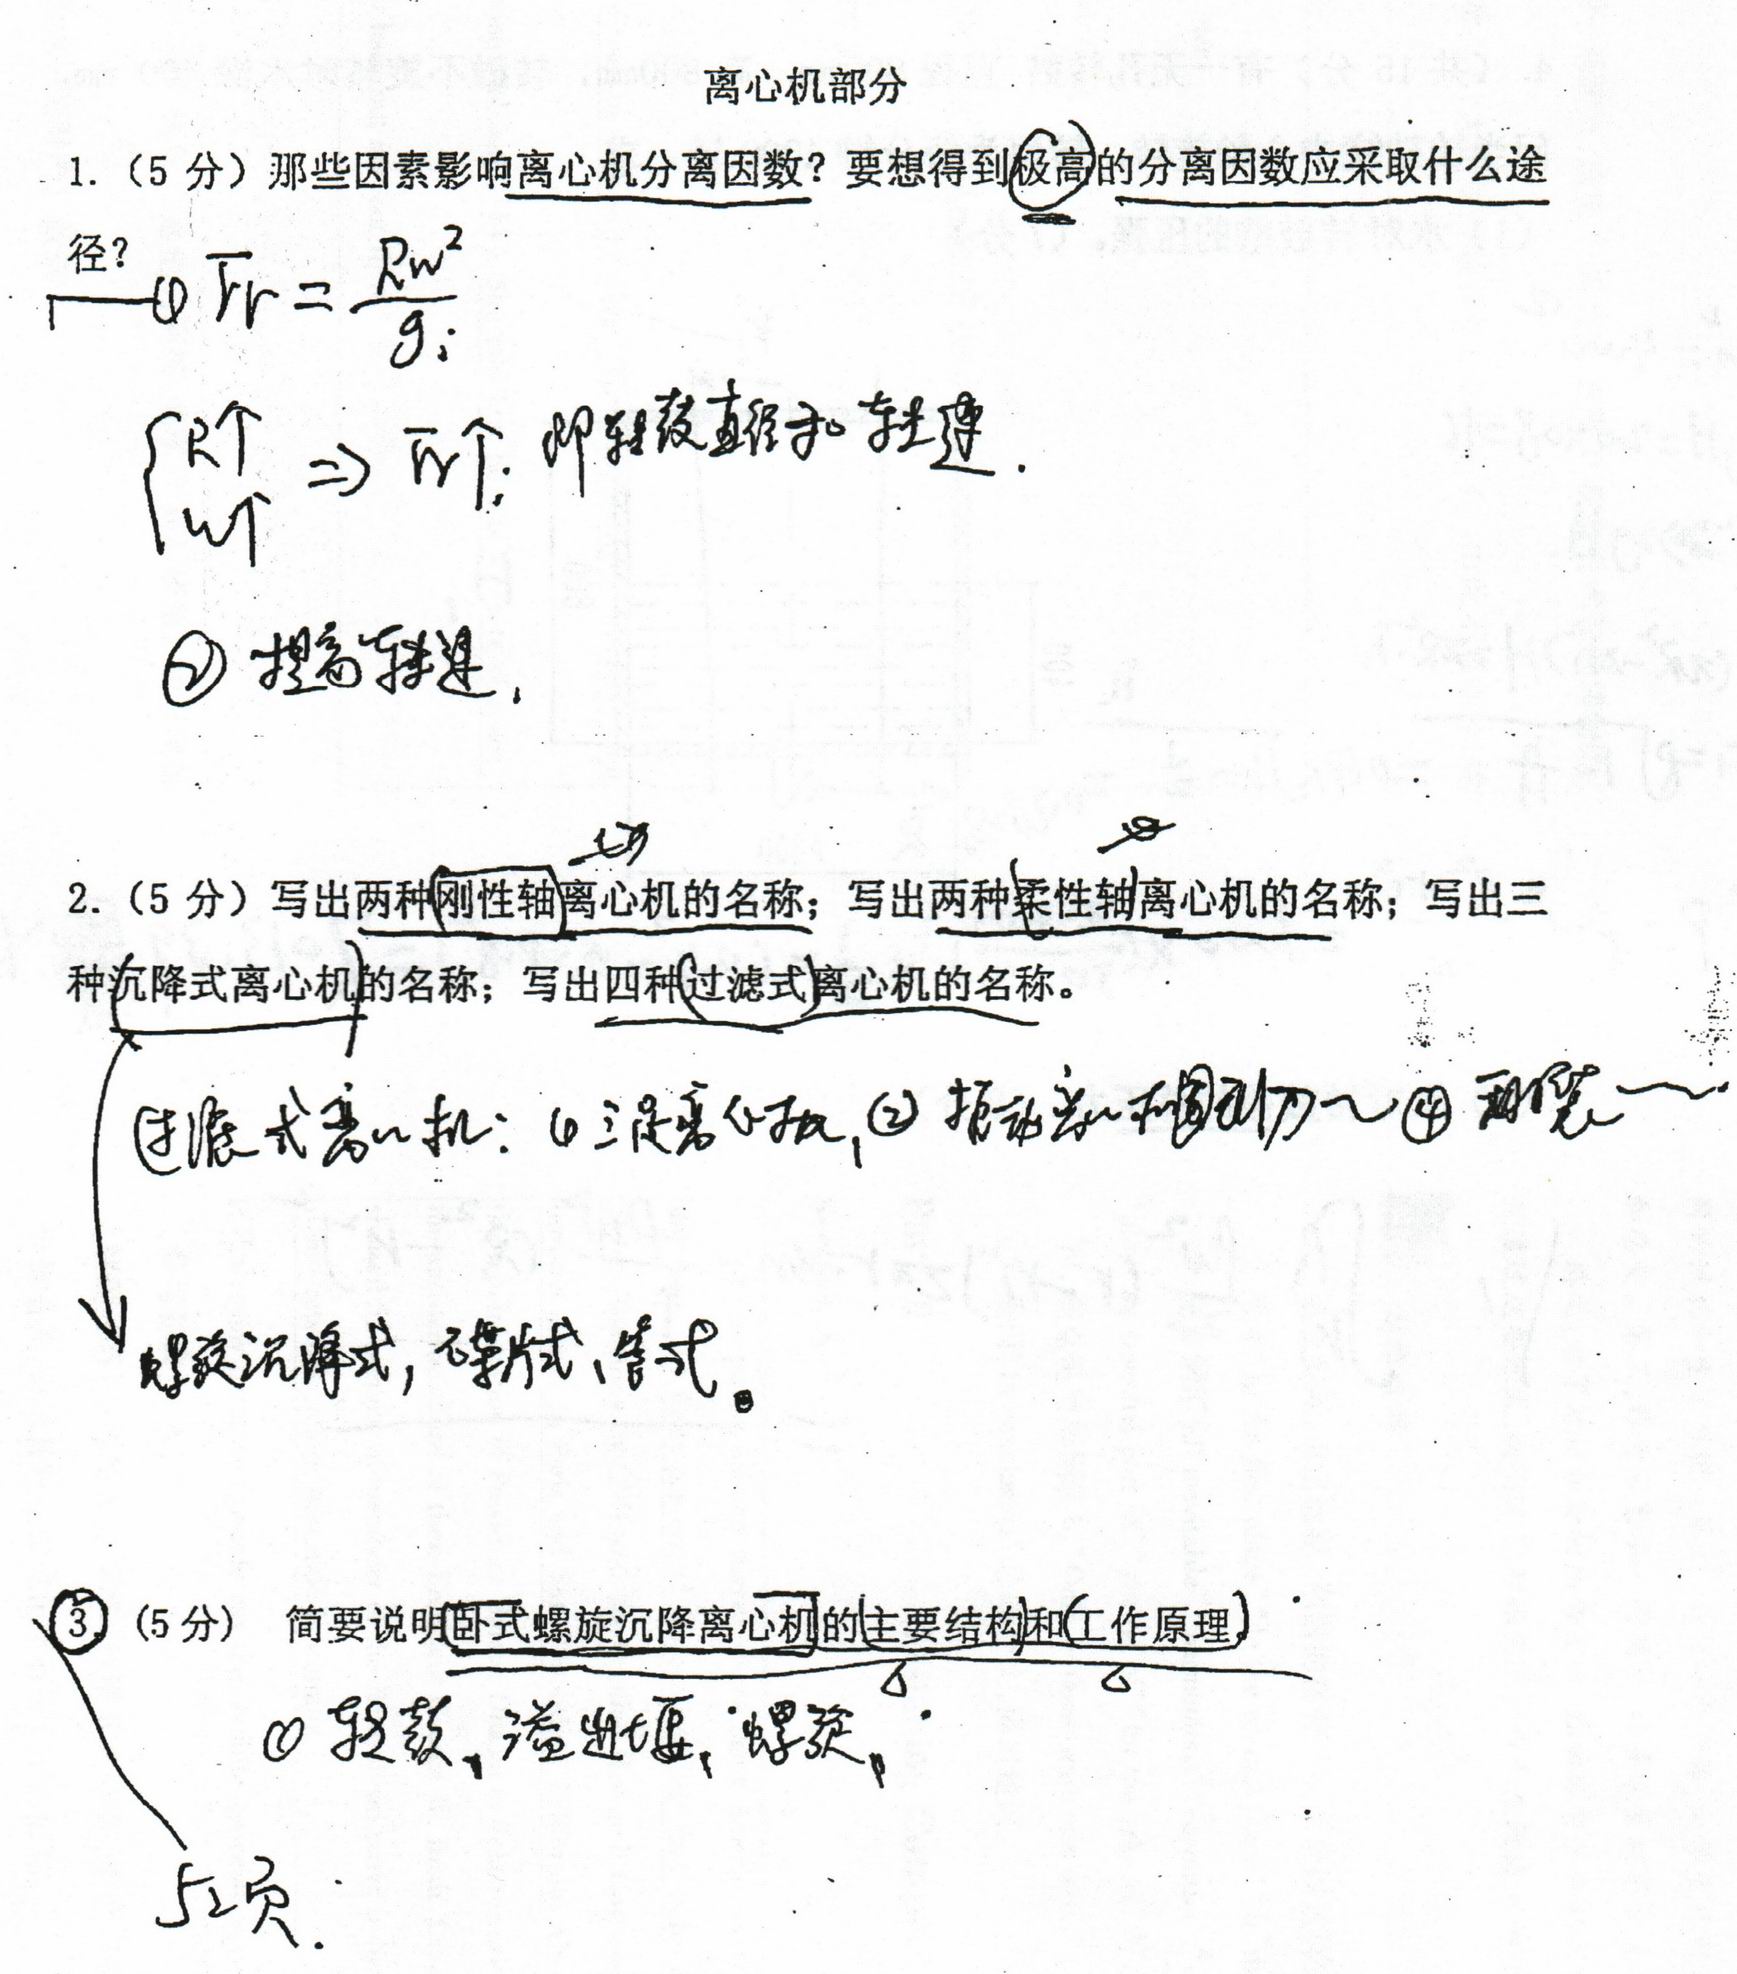 离心机部分
1.（5 分）那些因素影响离心机分离因数？要想得到极高的分离因数应采取什么途
径？
① Fr = Rw²/g；
{R↑ w↑ ⇒ Fr↑；即转鼓直径和转速.
② 提高转速，
2.（5 分）写出两种刚性轴离心机的名称；写出两种柔性轴离心机的名称；写出三
种沉降式离心机的名称；写出四种过滤式离心机的名称。
过滤式离心机：① 三足离心机，② 振动离心机 ④
螺旋沉降式，碟片式、管式。
3.（5 分） 简要说明卧式螺旋沉降离心机的主要结构和工作原理。
① 转鼓，溢出堰，螺旋，
52页.